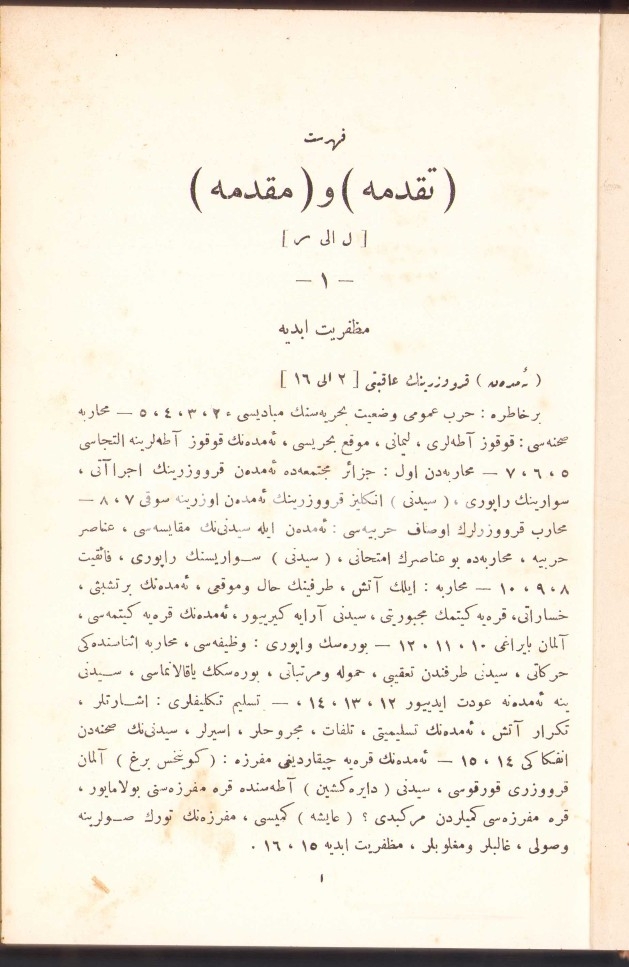 فهرست
( تقدمه ) و ( مقدمه )
[ ل الى س ]
— ١ —
مظفریت ابدیه
( ئه‌مده‌ن ) قروزرینك عاقبتی [ ٢ الى ١٦ ]
بر خاطره : حرب عمومی وضعیت بحریه‌سنك مبادیسی ٢ ، ٣ ، ٤ ، ٥ — محاربه
صحنه‌سی : قوقوز آطه‌لری ، لیمانی ، موقع بحریسی ، ئه‌مده‌نك قوقوز آطه‌لرینه التجاسی
٥ ، ٦ ، ٧ — محاربه‌دن اول : جزائر مجتمعه‌ده ئه‌مده‌ن قرووزرینك اجراآتی ،
سوارینك راپوری ، ( سیدنی ) انکلیز قرووزرینك ئه‌مده‌ن اوزرینه سوقی ٧ ، ٨ —
محارب قرووزرلرك اوصاف حربیه‌سی : ئه‌مده‌ن ایله سیدنی‌نك مقایسه‌سی ، عناصر
حربیه ، محاربه‌ده بو عناصرك امتحانی ، ( سیدنی ) سواریسنك راپوری ، فائقیت
٨ ، ٩ ، ١٠ — محاربه : ایلك آتش ، طرفینك حال وموقعی ، ئه‌مده‌نك بر تشبثی ،
خساراتی، قره‌یه کیتمك مجبوریتی ، سیدنی آرایه کیرییور ، ئه‌مده‌نك قره‌یه کیتمه‌سی ،
آلمان بایراغی ١٠ ، ١١ ، ١٢ — بوره‌سك واپوری : وظیفه‌سی ، محاربه اثناسنده‌کی
حرکاتی ، سیدنی طرفندن تعقیبی ، حموله ومرتباتی ، بوره‌سکك یاقالانماسی ، سیدنی
ینه ئه‌مده‌نه عودت ایدییور ١٢ ، ١٣ ، ١٤ ، — تسلیم تکلیفلری : اشارتلر ،
تکرار آتش ، ئه‌مده‌نك تسلیمیتی ، تلفات ، مجروحلر ، اسیرلر ، سیدنی‌نك صحنه‌دن
انفکاکی ١٤ ، ١٥ — ئه‌مده‌نك قره‌یه چیقاردیغی مفرزه : ( کونیغس برغ ) آلمان
قرووزری قورقوسی ، سیدنی ( دایره‌کشین ) آطه‌سنده قره مفرزه‌سنی بولامایور ،
قره مفرزه‌سی کمیلردن مرکبدی ؟ ( عایشه ) کمیسی ، مفرزه‌نك تورك صولرینه
وصولی ، غالبلر ومغلوبلر ، مظفریت ابدیه ١٥ ، ١٦ .
١